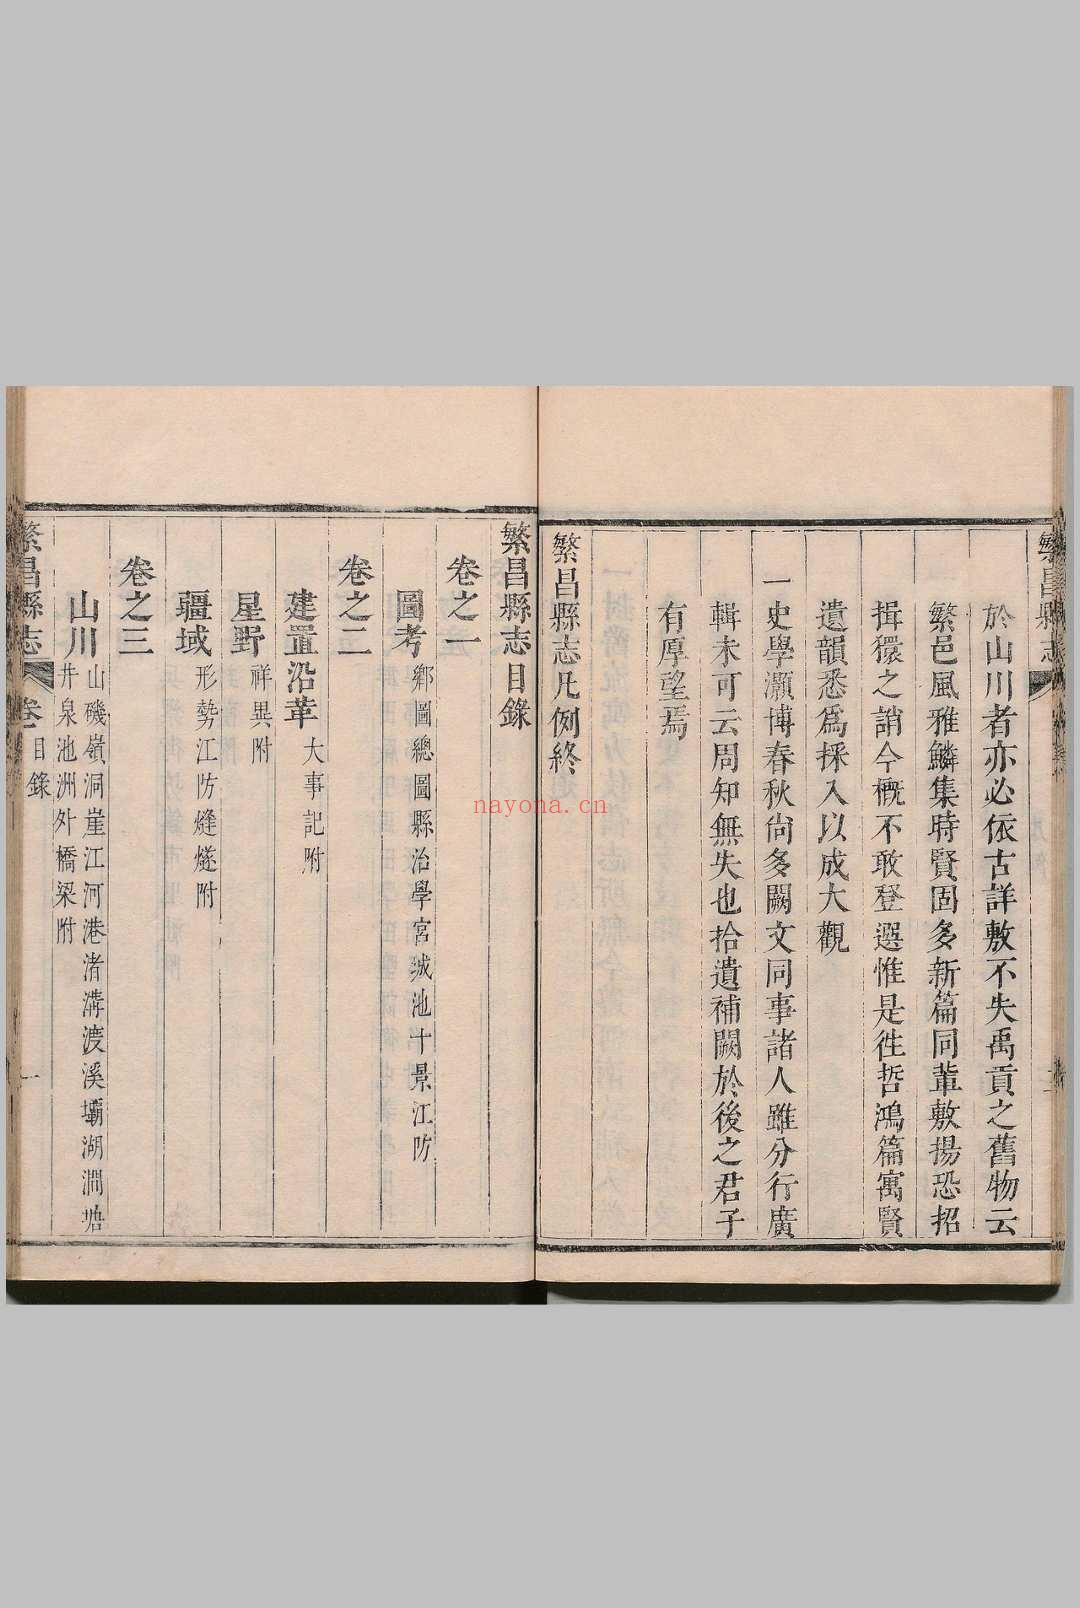 於山川者亦必依古詳敷不失禹貢之舊物云
繁邑風雅鱗集時賢固多新篇同輩敷揚恐招
揖獧之誚今概不敢登選惟是徃哲鴻篇寓賢
遺韻悉爲採入以成大觀
一史學灝博春秋尙多闕文同事諸人雖分行廣
輯未可云周知無失也拾遺補闕於後之君子
有厚望焉
繁昌縣志凡例終
繁昌縣志目錄
卷之一
圖考 鄉圖總圖縣治學宮城池十景江防
卷之二
建置沿革 大事記附
星野 祥異附
疆域 形勢江防烽燧附
卷之三
山川 山磯嶺洞崖江河港渚溝渡溪壩湖澗塘
井泉池洲外橋梁附
繁昌縣志 卷 目錄 一
nayona.cn